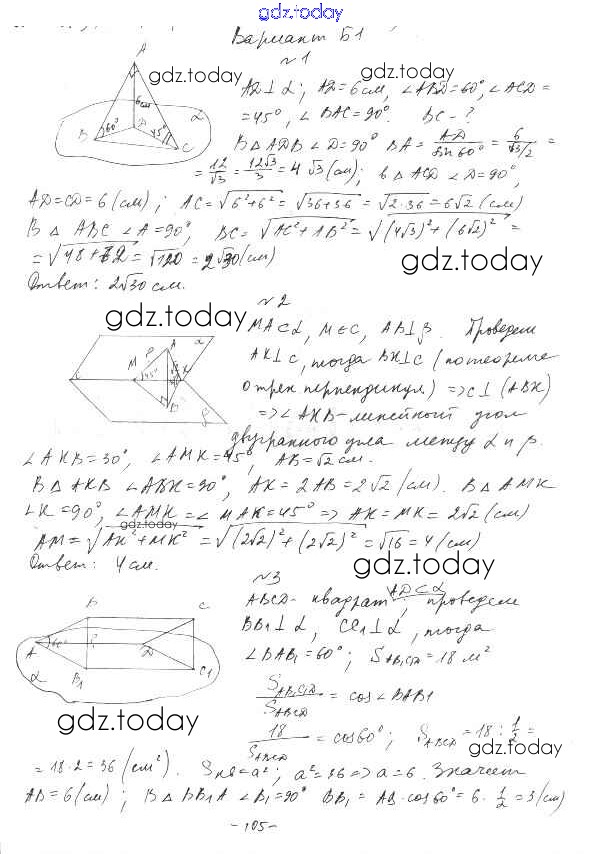 gdz.today
Вариант Б1
N 1
gdz.today
AD⊥α; AD=6см, ∠ABD=60°, ∠ACD=
=45°, ∠BAC=90°. BC-?
В △ADB ∠D=90° BA=AD/sin60°=6/(√3/2)=
=12/√3=12√3/3=4√3 (см); в △ACD ∠D=90°,
AD=CD=6(см); AC=√(6²+6²)=√(36+36)=√(2·36)=6√2 (см)
В △ABC ∠A=90°, BC=√(AC²+AB²)=√((4√3)²+(6√2)²)=
=√(48+72)=√120=2√30(см)
gdz.today
Ответ: 2√30 см.
A
6см
α
B
60°
D
45°
C
gdz.today
N 2
MA⊂α, M∈C, AB⊥β. Проведем
AK⊥C, тогда BK⊥C (по теореме
о трех перпендикул.) =>C⊥(ABK)
=>∠AKB-линейный угол
двугранного угла между α и β.
∠AKB=30°, ∠AMK=45°, AB=√2см.
В △AKB ∠ABK=90°, AK=2AB=2√2 (см). В △AMK
∠K=90°, ∠AMK=∠MAK=45° => AK=MK=2√2(см)
gdz.today
AM=√(AK²+MK²)=√((2√2)²+(2√2)²)=√16=4(см)
Ответ: 4см.
gdz.today
C
M
45°
A
α
K
B
β
N3
ABCD-квадрат, AD⊂α, проведем
BB₁⊥α, CC₁⊥α, тогда
∠BAB₁=60°; S_AB₁C₁D=18 м²
S_AB₁C₁D/S_ABCD=cos∠BAB1
18/S_ABCD=cos60°; S_ABCD=18:1/2=
gdz.today
gdz.today
=18·2=36 (см²). Sкв=a²; a²=36=>a=6. Значит
AB=6(см); В △BB₁A ∠B₁=90° BB₁=AB·cos60°=6·1/2=3(см)
B
C
A
60°
D
B₁
C1
α
-105-